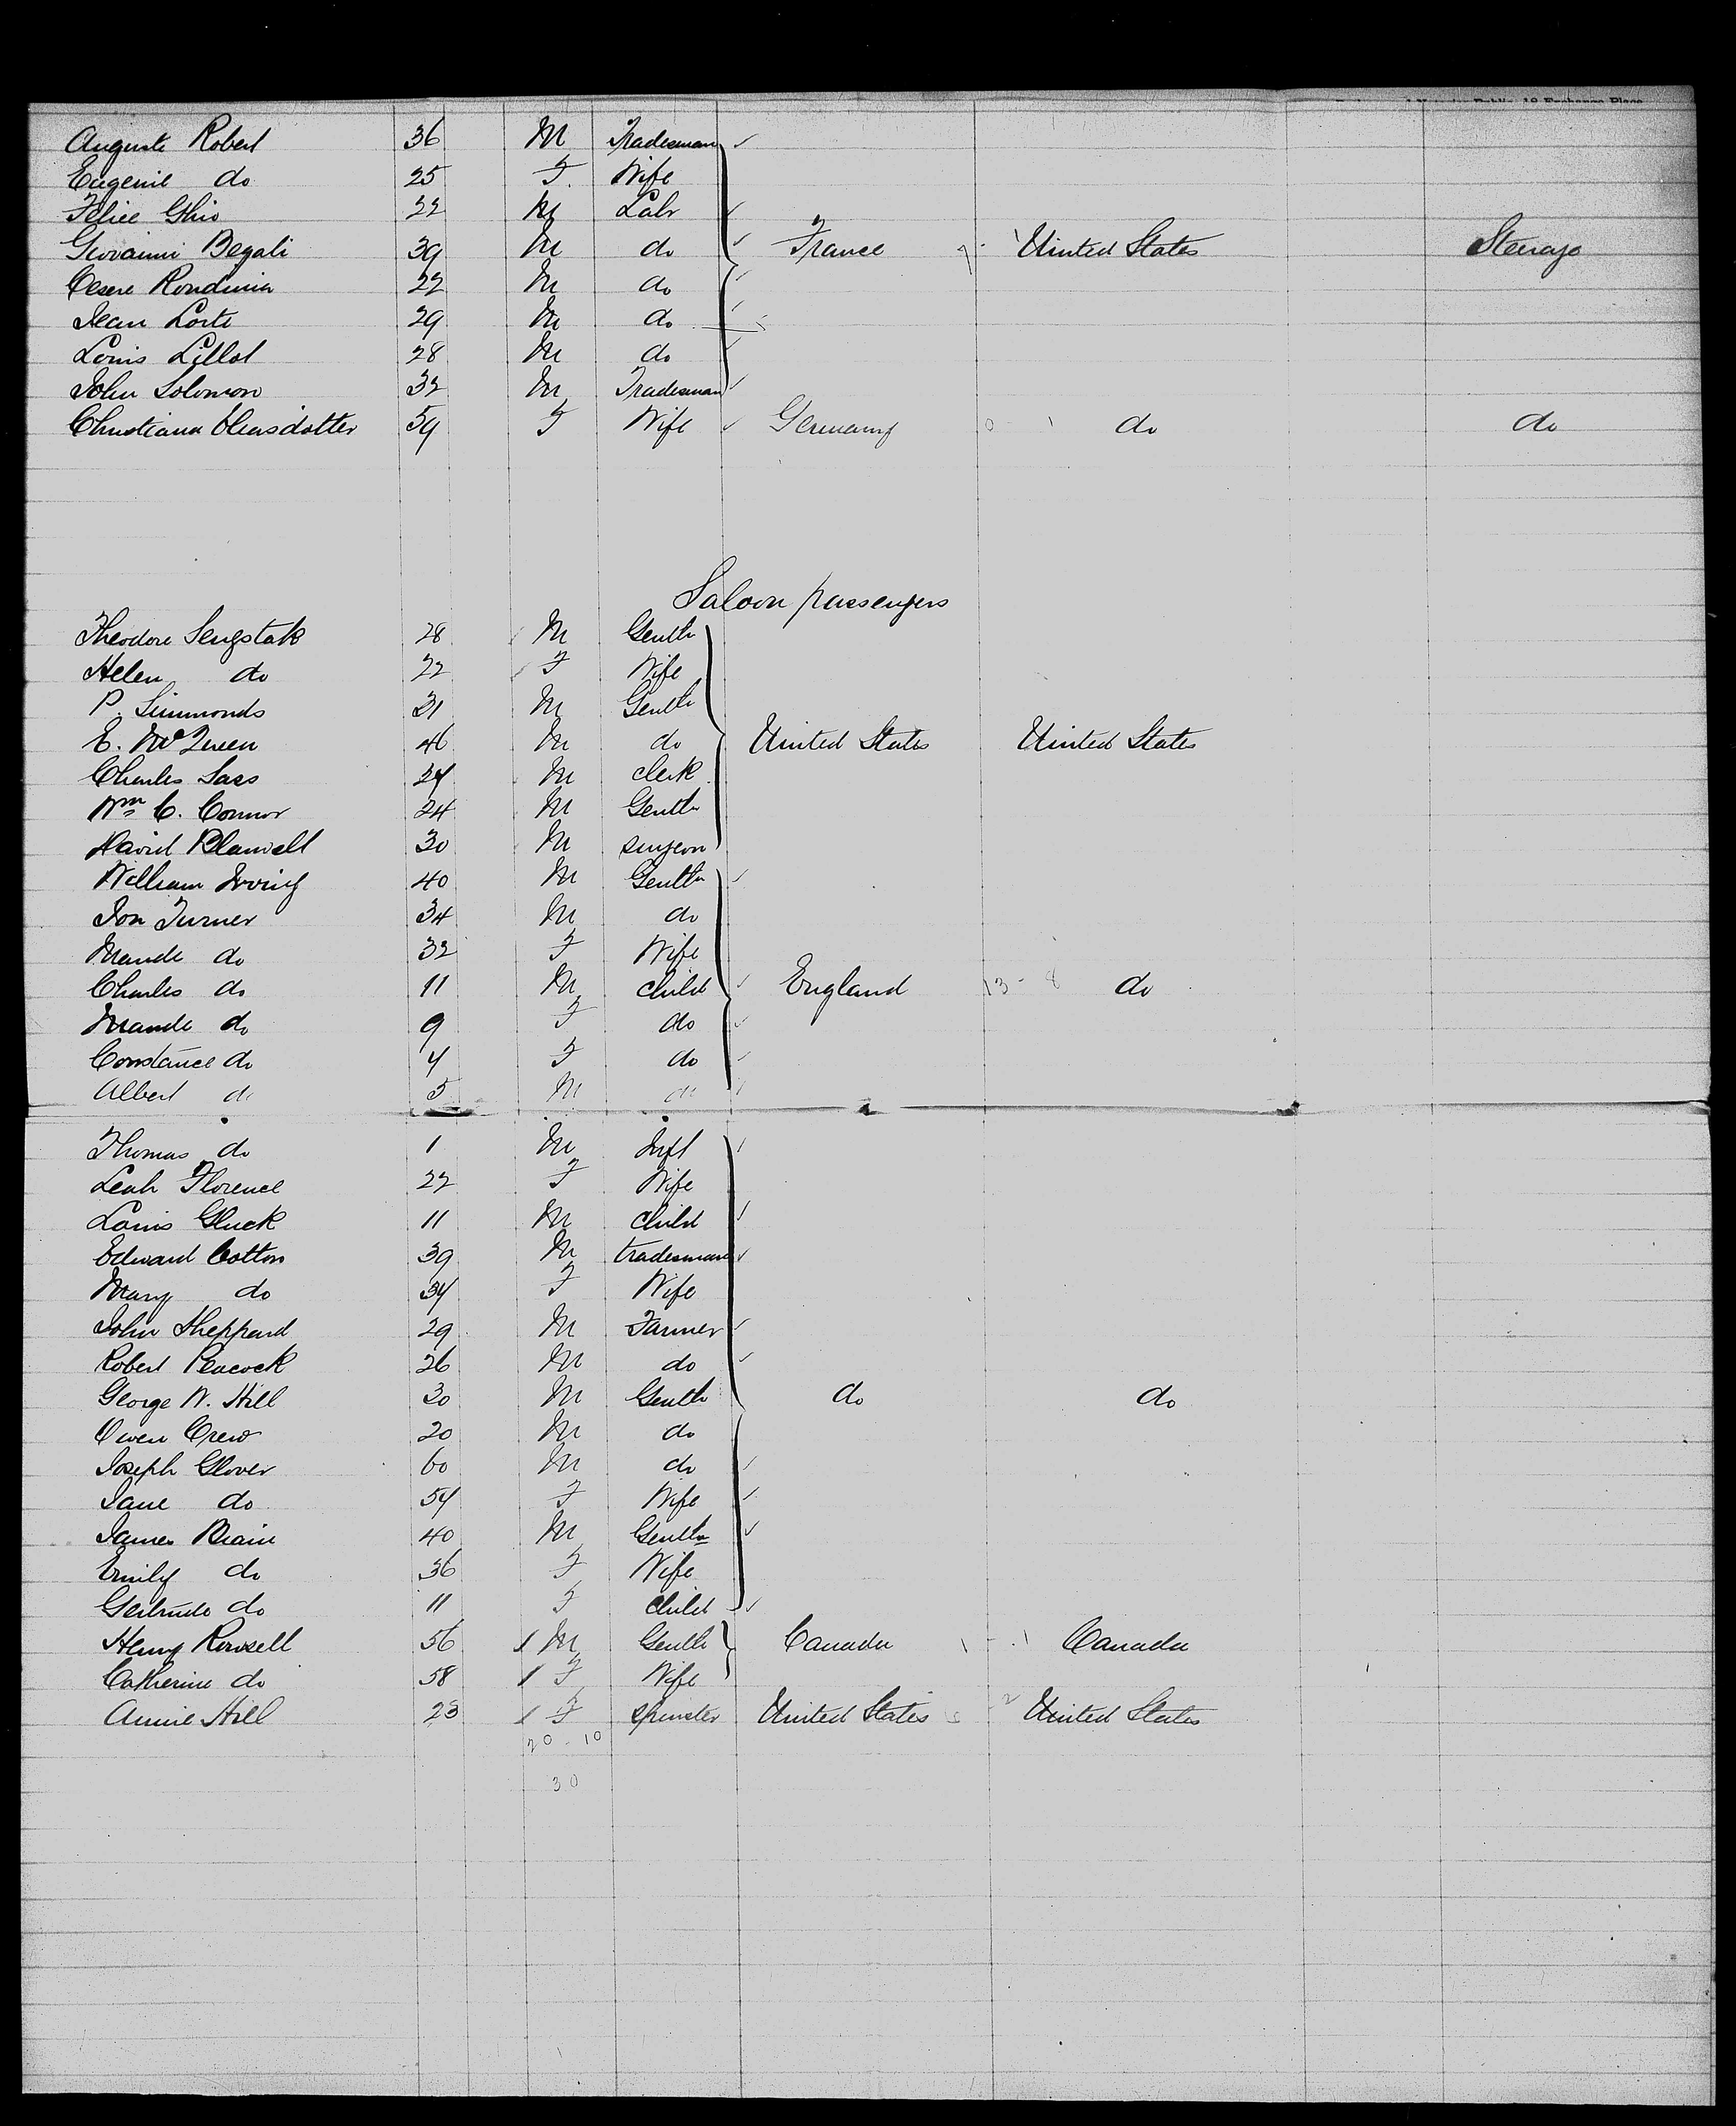 Auguste Robert 36 M Tradesman
Eugenie do 25 F. Wife
Felice Ghio 22 M Labr
Giovanni Begali 39 M do France 7 - 1 United States Steerage
Cesere Rondinia 22 M do
Jean Lorte 29 M do
Louis Lillot 28 M do
John Solomon 32 M Tradesman
Christiana 59 F Wife Germany 0 1 do do
Saloon passengers
Theodore Sengstak 28 M Gentln
Helen do 22 F Wife
P. Simmonds 31 M Gentln
E. McQueen 46 M do United States United States
Charles Sass 24 M clerk
Wm C. Connor 24 M Gentln
David Blauvelt 30 M surgeon
William Irving 40 M Gentln
Jon Turner 34 M do
Maude do 32 F Wife
Charles do 11 M child England 13 - 8 do
Maude do 9 F do
Constance do 4 F do
Albert do 5 M do
Thomas do 1 M Inft
Leah Florence 22 F Wife
Louis Gluck 11 M child
Edward Cotton 39 M tradesman
Mary do 34 F Wife
John Sheppard 29 M Farmer
Robert Peacock 26 M do
George W. Hill 30 M Gentln do do
Owen Crew 20 M do
Joseph Glover 60 M do
Jane do 54 F Wife
James Brain 40 M Gentln
Emily do 36 F Wife
Gertrude do 11 F child
Henry Rowsell 56 1 M Gentln Canada 1 - 1 Canada
Catherine do 58 1 F Wife
Annie Hill 23 1 F spinster United States 2 United States
20 - 10
30